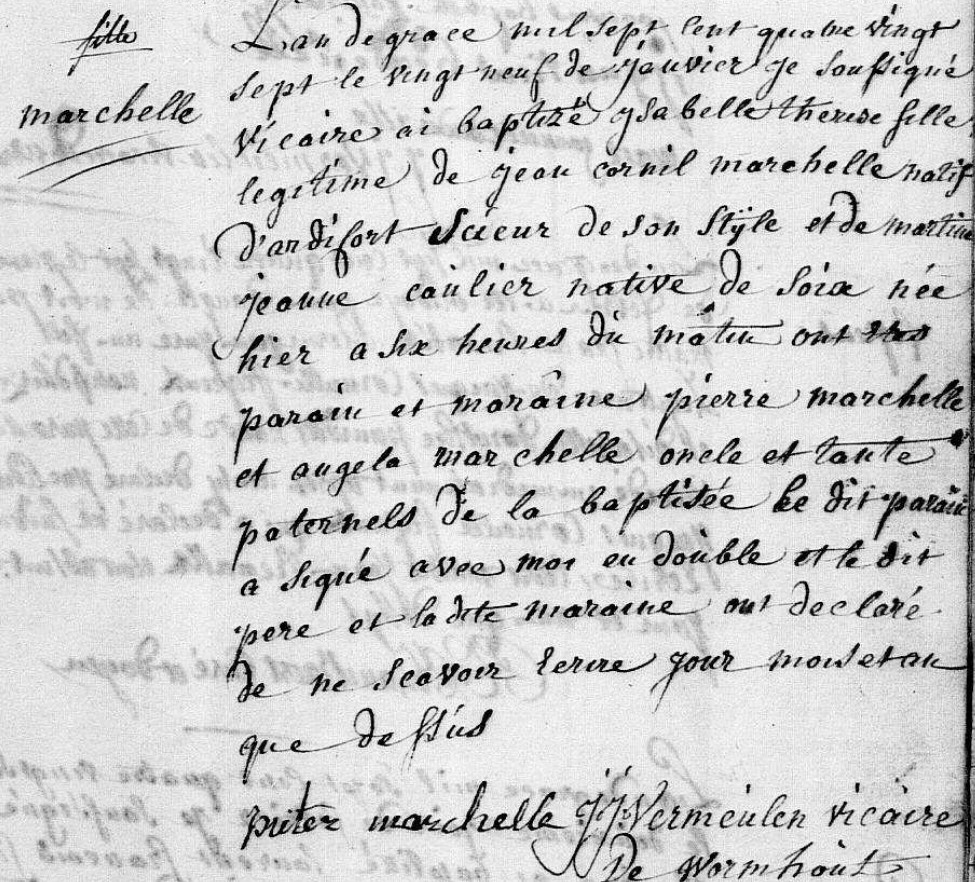 fille
marchelle
L'an de grace mil sept cent quatre vingt
sept le vingt neuf de janvier je soussigné
vicaire ai baptizé ysabelle therese fille
legitime de jean cornil marchelle natif
d'ardifort scieur de son stÿle et de martine
jeanne caulier native de soix née
hier a six heures du mátin ont
parain et maraine pierre marchelle
et angela marchelle oncle et tante
paternels de la baptisée le dit parain
a signé avec moi en double et le dit
pere et la dite maraine ont declaré
de ne scavoir ecrire jour mois et an
que dessus
piiter marchelle J:J: Vermeulen vicaire
De wormhout